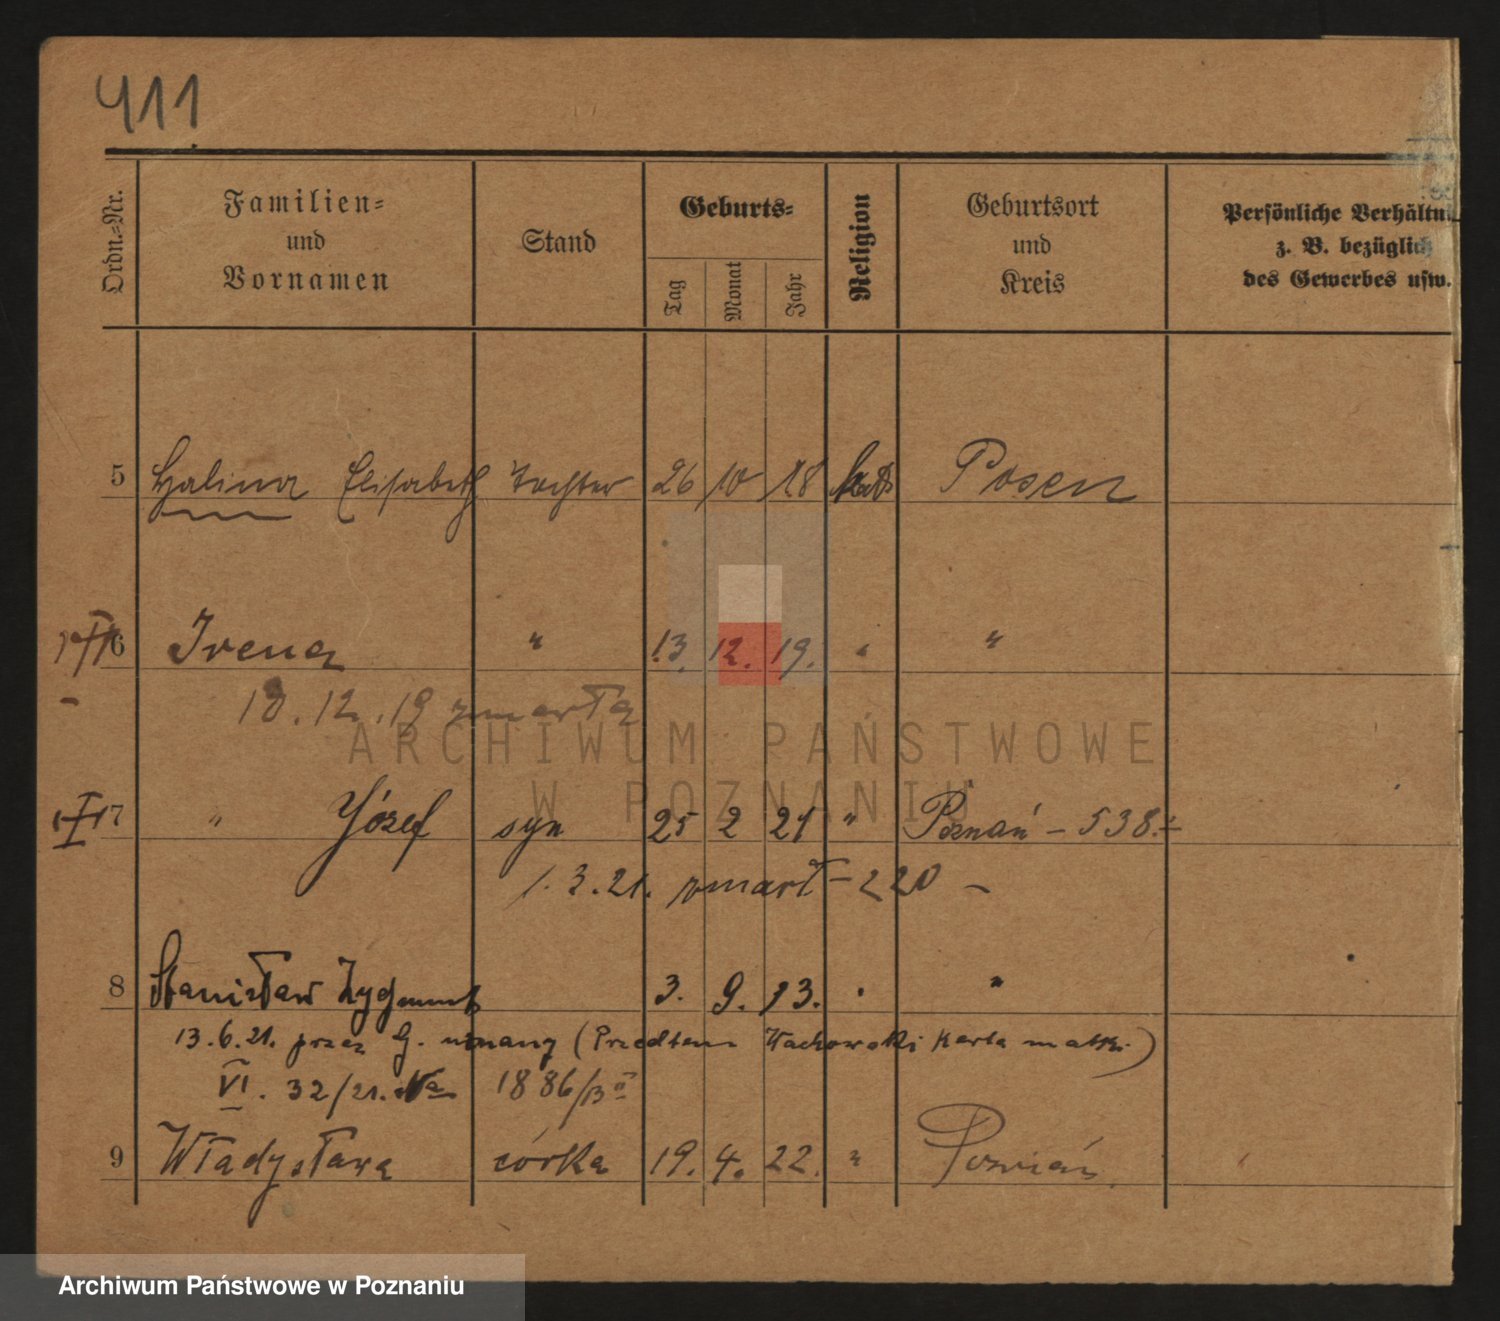 411
Ordn.-Nr.
Familien-
und
Vornamen
Stand
Geburts-
Tag
Monat
Jahr
Religion
Geburtsort
und
Kreis
Persönliche Verhältni
z. B. bezüglich
des Gewerbes usw.
5 Halina Elisabeth Tochter 26 10 18 kath Posen
6 Irena " 13. 12. 19. " "
18.12.19 zmarła
7 " Józef syn 25 2 21 " Poznań – 538.
1.3.21. zmarł – 220 –
8 Stanisław Zygmunt 3. 9. 13. " "
13.6.21. przez G. uznany (Przedtem Wachowski karta matki)
VI. 32/21. 1886/
9 Władysława córka 19. 4. 22. " Poznań
ARCHIWUM PAŃSTWOWE
W POZNANIU
Archiwum Państwowe w Poznaniu